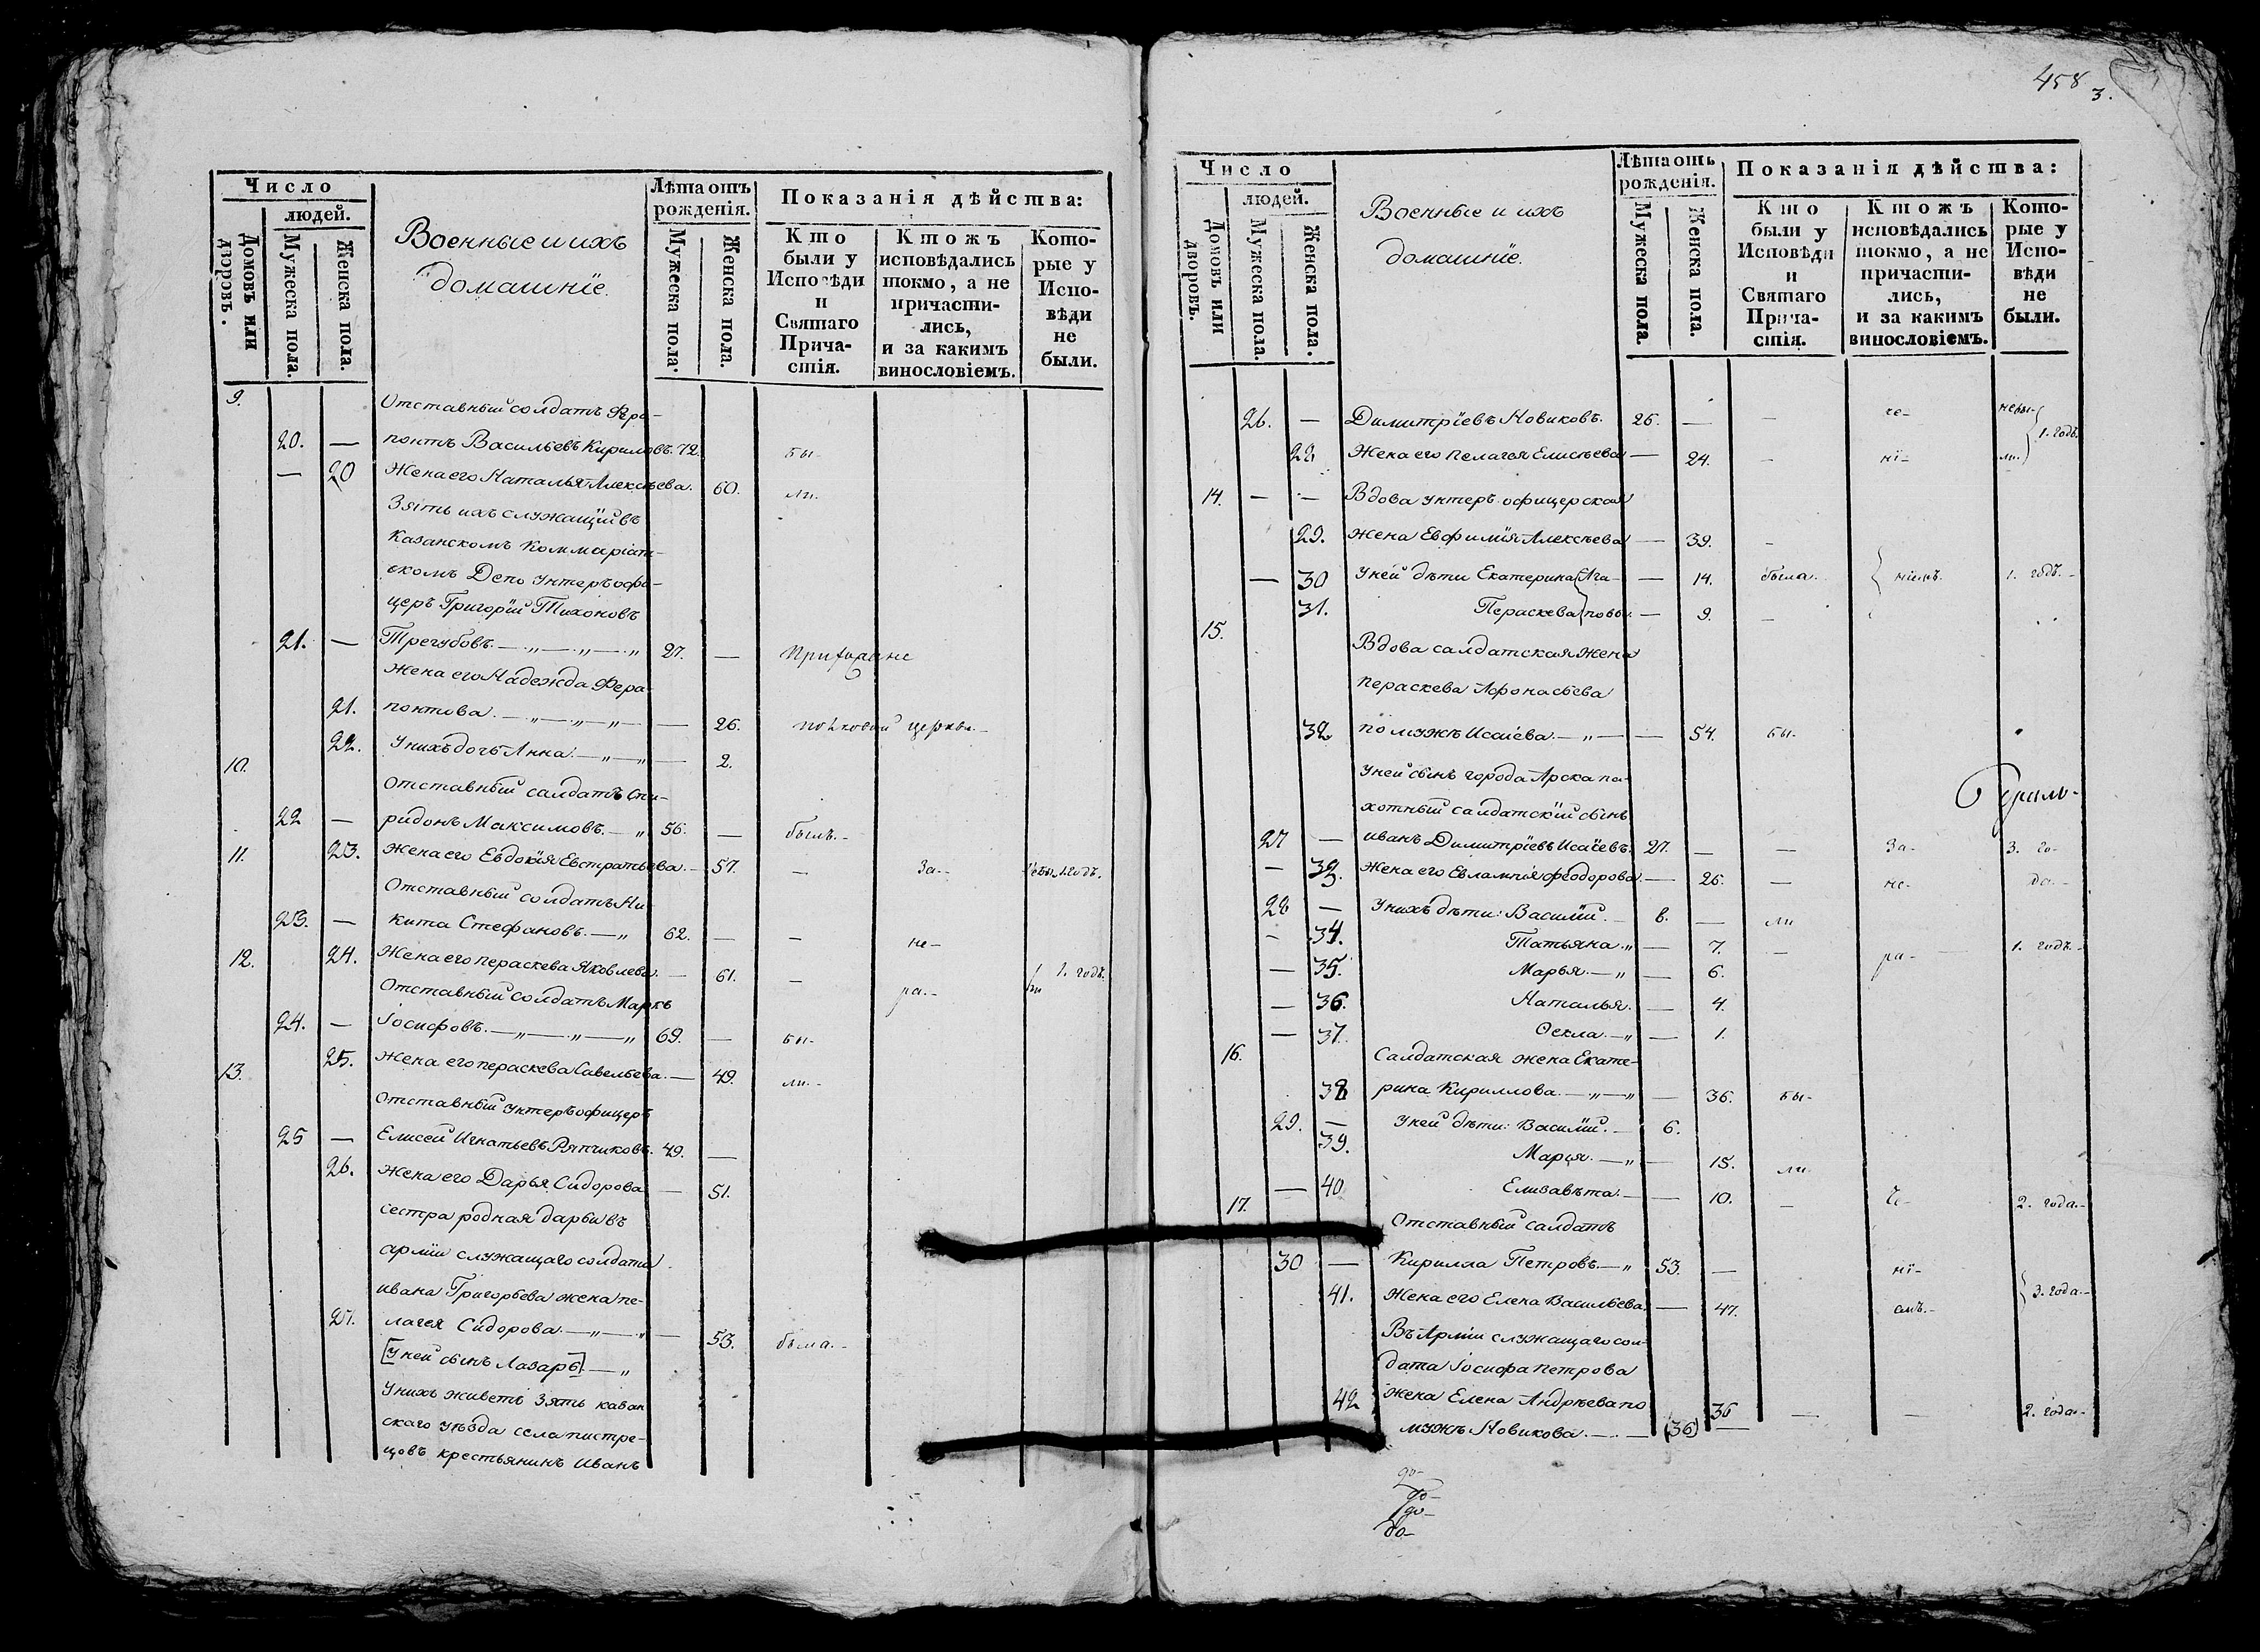 Число
людей.
Домовъ или дворовъ.
Мужеска пола.
Женска пола.
Военные и ихъ
домашнïе.
Лѣта отъ рожденія.
Мужеска пола.
Женска пола.
Показанія дѣйства:
Кто были у Исповѣди и Святаго Причастія.
Ктожъ исповѣдались токмо, а не причастились, и за какимъ винословіемъ.
Которые у Исповѣди не были.
9. Отставный солдатъ Фера-
20. — понтъ Васильевъ Кириловъ. 72. бы-
— 20 Жена его Наталья Алексѣева. 60. ли.
Зять ихъ служащïй въ
Казанскомъ Коммисрiат-
скомъ Депо унтеръ офи-
церъ Григорïй Тихоновъ
21. — Трегубовъ. — „ — „ — „ 27. —
Жена его Надежда Фера-
21. понтова. — „ — „ — „ — 26. полковой церкви. —
22. У нихъ дочь Анна. — „ — „ — 2.
10. Отставный салдатъ Спи-
22 — ридонъ Максимовъ. — „ 56. — былъ. -
11. 23. Жена его Евдокïя Евстратьева. — 57. — За-
Отставный солдатъ Ни-
23. — кита Стефановъ. — „ 62. — — не-
12. 24. Жена его Пераскева Яковлева. — 61. — ра.- 1. годъ.
Отставный солдатъ Маркъ
24. — Iосифовъ. — „ — „ — „ 69. — бы-
13. 25. Жена его Пераскева Савельева. — 49. ли. -
Отставный унтеръ офицеръ
25 — Елисей Игнатьевъ Ряпчиковъ. 49. —
26. Жена его Дарья Сидорова — 51.
Сестра родная Дарьи въ
армïи служащаго солдата
Ивана Григорьева жена Пе-
27. лагея Сидорова. — „ — „ — 53. была. -
[У ней сынъ Лазарь] — „
У нихъ живетъ зять казан
скаго уѣзда села Пистре-
цовъ крестьянинъ Иванъ
458
3.
Число
людей.
Домовъ или дворовъ.
Мужеска пола.
Женска пола.
Военные и ихъ
домашнïе.
Лѣта отъ рожденія.
Мужеска пола.
Женска пола.
Показанія дѣйства:
Кто были у Исповѣди и Святаго Причастія.
Ктожъ исповѣдались токмо, а не причастились, и за какимъ винословіемъ.
Которые у Исповѣди не были.
26. — Димитрïевъ Новиковъ. 26. — — не- 1. годъ.
28 Жена его Пелагея Елисѣева — 24. — нï- ли.
14. — — Вдова унтеръ офицерская
29. жена Евфимïя Алексѣева — 39. -
— 30 У ней дѣти Екатерина Ага- — 14. была. 1. годъ. -
31. Пераскева повы. — 9. —
15. Вдова салдатская жена
Пераскева Афонасьева
32 по мужѣ Исаiева. — „ — — 54. бы-
У ней сынъ города Арска па-
хотный салдатскïй сынъ
27 — Иванъ Димитрïевъ Исаïевъ. 27. — — За- 3. го-
— 33. Жена его Евлампïя Феодорова. — 26. — не- да. -
28 — У нихъ дѣти: Василïй. — 8. — ли
— 34. Татьяна. „ — 7. — ра- 1. годъ. -
— 35. Марья. — „ — 6.
— 36. Наталья. — 4.
— 37. Ѳекла. — „ — 1.
16. Салдатская жена Екате-
38 рина Кириллова. — „ — „ — 36. бы-
29. — У ней дѣти: Василïй. — 6.
39. Марья. — „ — 15. ли
— 40 Елизавѣта. — — 10. — 2. года. -
17. Отставный салдатъ
30 — Кирилла Петровъ. — „ 53. — нï-
41. Жена его Елена Васильева. — 47. емъ. - 3. года. -
Въ Армïи служащаго сол-
дата Iосифа Петрова
42 жена Елена Андрѣева по — 36 — — 2. года. -
мужѣ Новикова. — . — (36) —
до-
до-
до-
до-